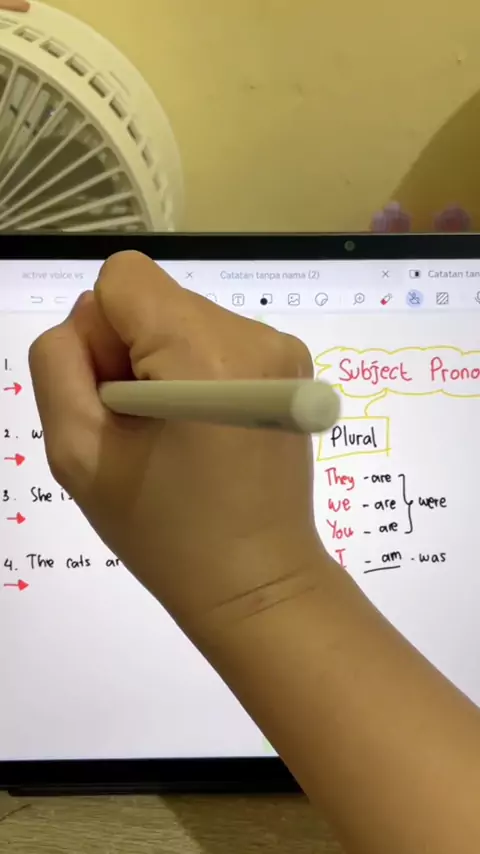 active voice vs
Catatan tanpa nama (2)
Catatan tan
1.
2. w
3. She is
4. The cats ar
Subject Prono
Plural
They - are
we - are
You - are
were
I - am - was